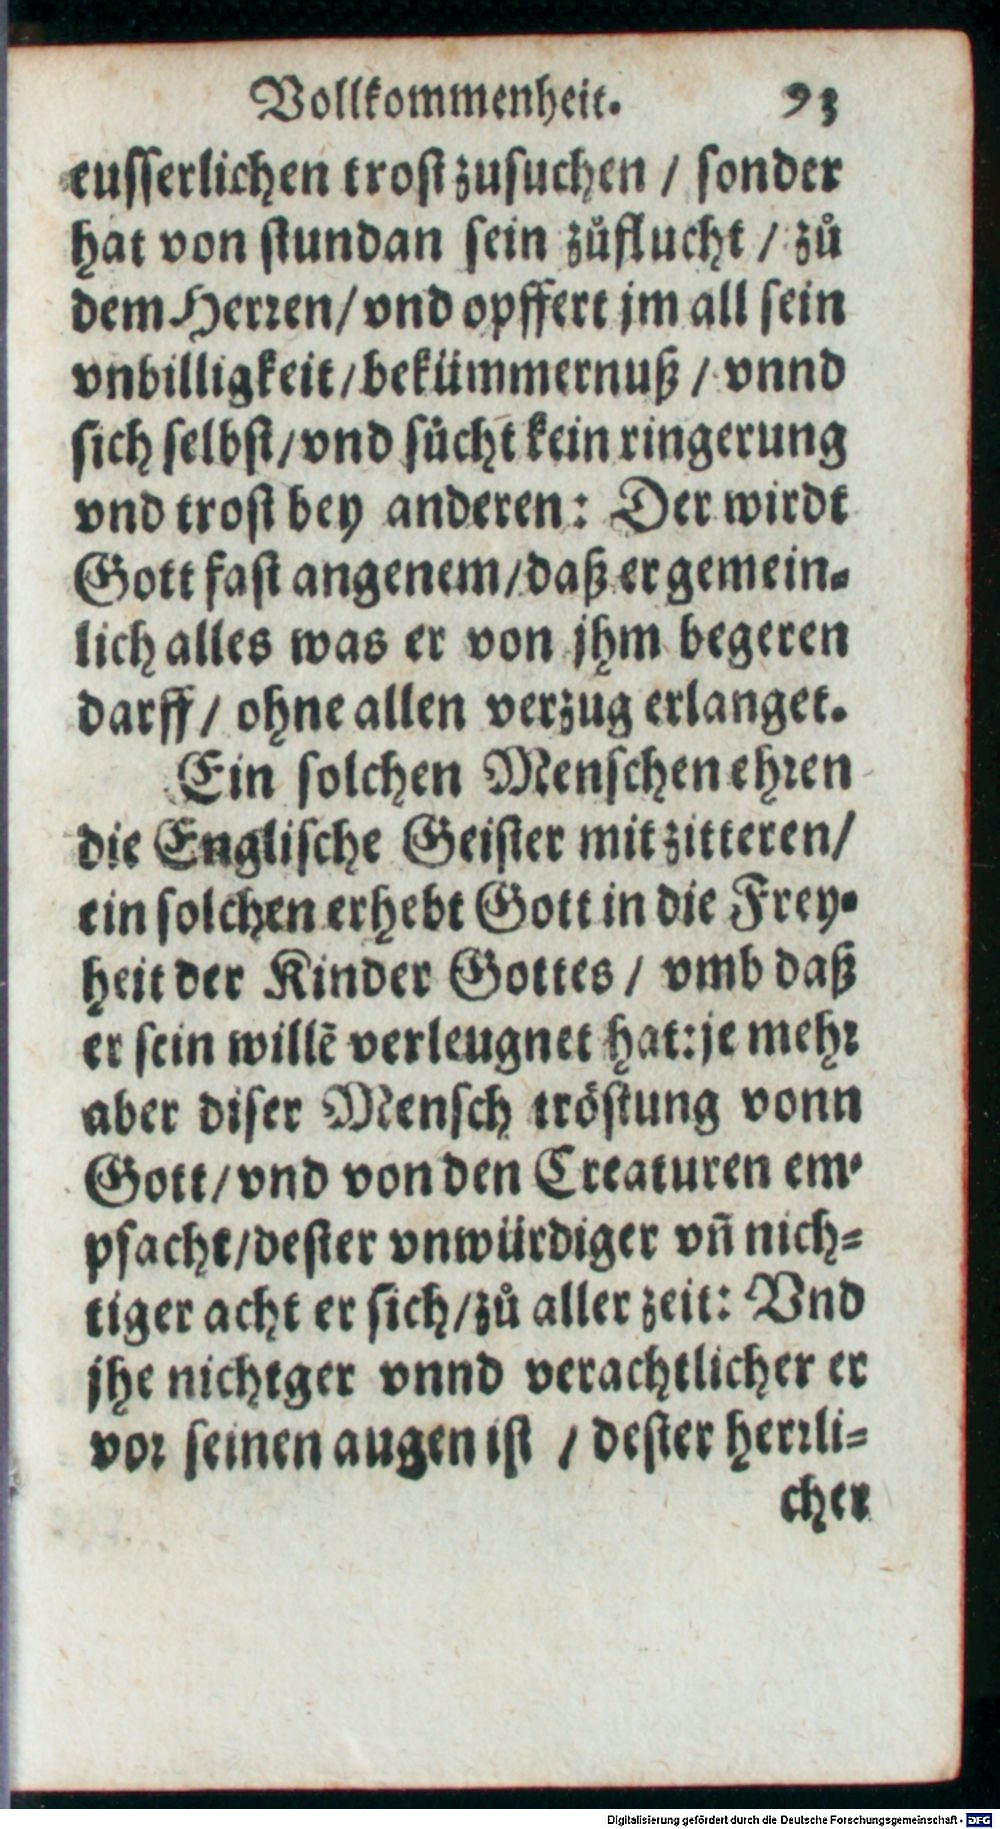 Vollkommenheit. 93
eusserlichen trost zusuchen / sonder
hat von stundan sein zůflucht / zů
dem Herren / vnd opffert jm all sein
vnbilligkeit / bekümmernuß / vnnd
sich selbst / vnd sůcht kein ringerung
vnd trost bey anderen: Der wirdt
Gott fast angenem / daß er gemein-
lich alles was er von jhm begeren
darff / ohne allen verzug erlanget.
Ein solchen Menschen ehren
die Englische Geister mit zitteren /
ein solchen erhebt Gott in die Frey-
heit der Kinder Gottes / vmb daß
er sein willē verleugnet hat: je mehr
aber diser Mensch tröstung vonn
Gott / vnd von den Creaturen em-
pfacht / dester vnwürdiger vn̄ nich-
tiger acht er sich / zů aller zeit: Vnd
jhe nichtger vnnd verachtlicher er
vor seinen augen ist / dester herrli-
cher
Digitalisierung gefördert durch die Deutsche Forschungsgemeinschaft - DFG